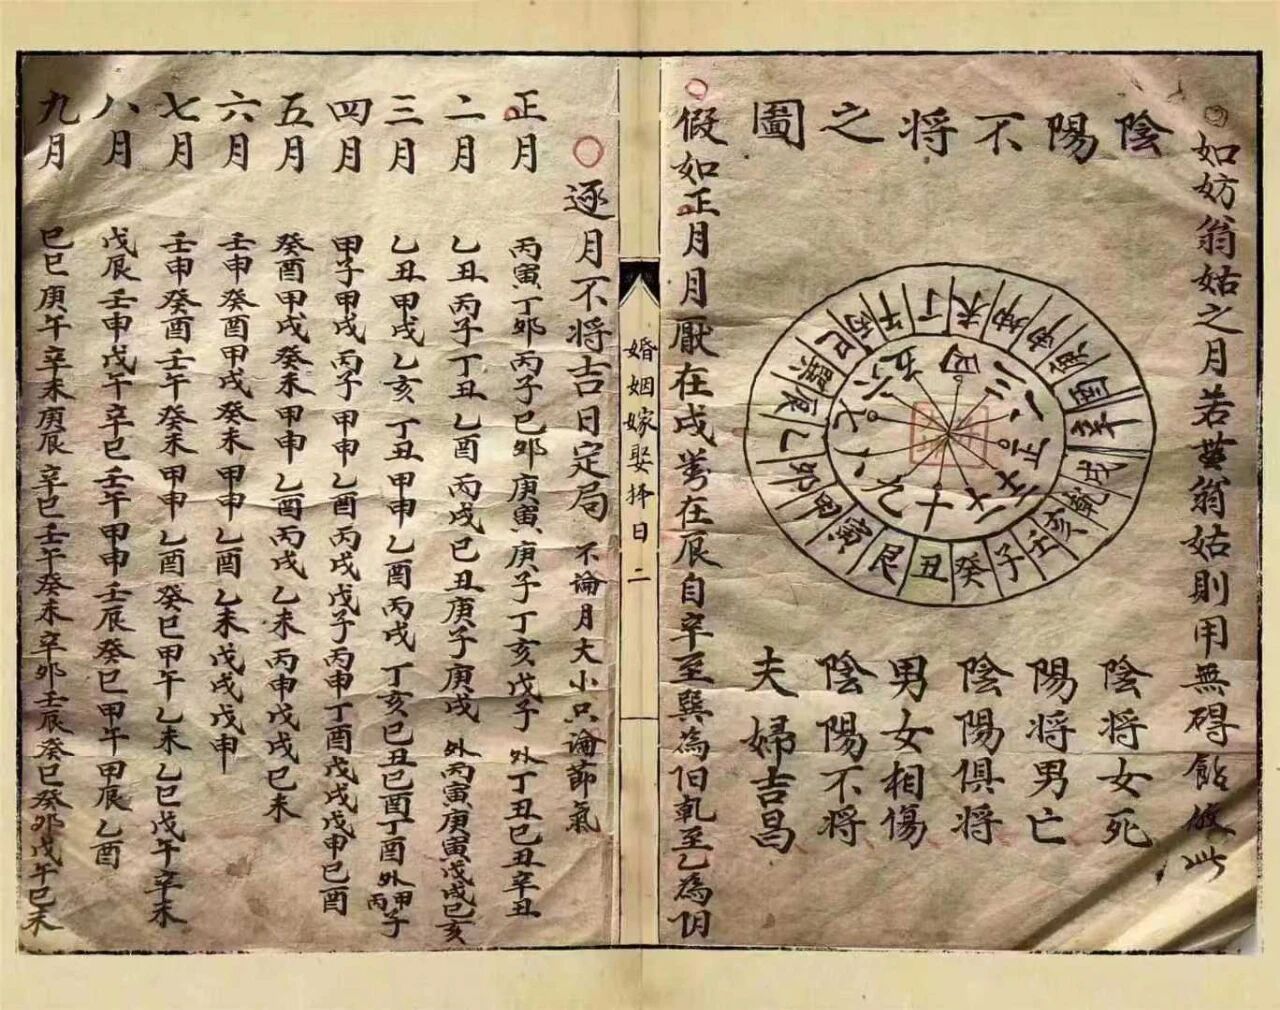 如妨翁姑之月若無翁姑則用無碍餘倣此
陰陽不将之圖
丙午丁未坤申庚酉辛戌乾亥壬子癸丑艮寅甲卯乙辰巽巳
正二三四五六七八九十
陰将女死
陽将男亡
陰陽俱将
男女相傷
陰陽不将
夫婦吉昌
假如正月月厭在戌對在辰自辛至巽為阳乾至乙為阴
婚姻嫁娶择日 二
逐月不将吉日定局 不論月大小只論節氣
正月 丙寅丁卯丙子己卯庚寅庚子丁亥戊子外丁丑己丑辛丑
二月 乙丑丙子丁丑乙酉丙戌己丑庚子庚戌外丙寅庚寅戊戌己亥
三月 乙丑甲戌乙亥丁丑甲申乙酉丙戌丁亥己丑己酉丁酉外甲子丙
四月 甲子甲戌丙子甲申乙酉丙戌戊子丙申丁酉戊戌戊申己酉
五月 癸酉甲戌癸未甲申乙酉丙戌乙未丙申戊戌己未
六月 壬申癸酉甲戌癸未甲申乙酉乙未戊戌戊申
七月 壬申癸酉壬午癸未甲申乙酉癸巳甲午乙未乙巳戊午辛未
八月 戊辰壬申戊午辛巳壬午甲申壬辰癸巳甲午甲辰乙酉
九月 巳巳庚午辛未庚辰辛巳壬午癸未辛卯壬辰癸巳癸卯戊午巳未